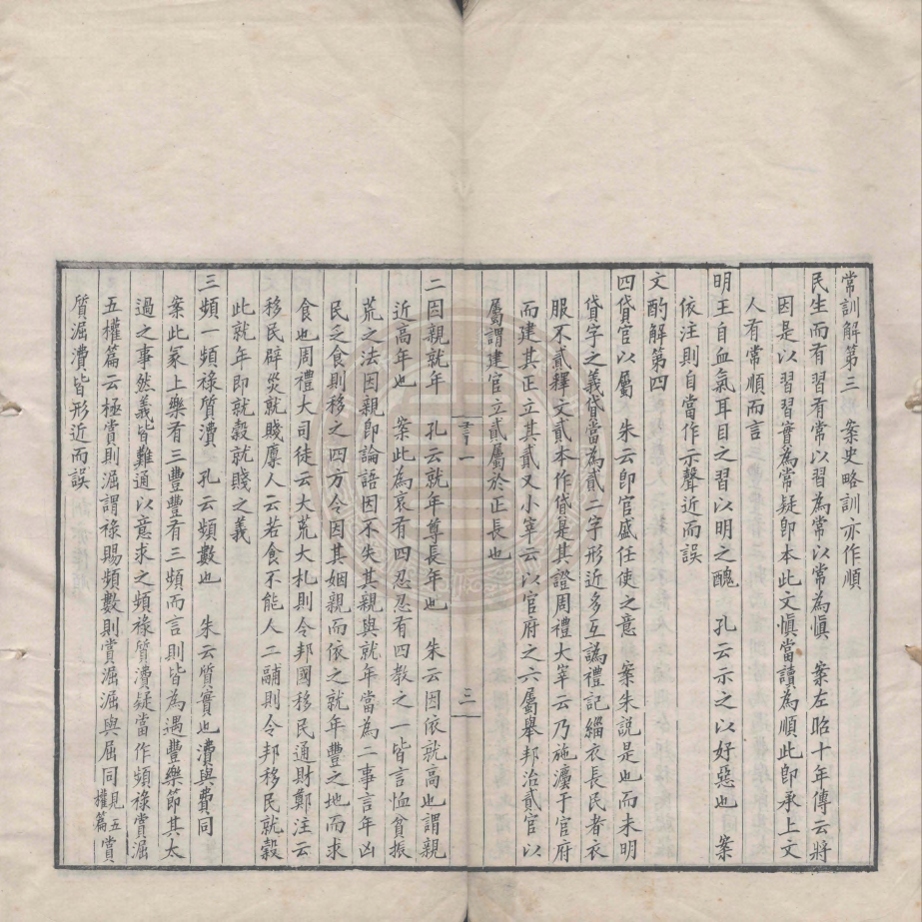 常訓解第三　案史略訓亦作順
民生而有習有常以習為常以常為愼　案左昭十年傳云將
因是以習習實為常疑卽本此文愼當讀為順此卽承上文
人有常順而言
明王自血氣耳目之習以明之醜　孔云示之以好惡也　案
依注則自當作示聲近而誤
文酌解第四
四貸官以屬　朱云卽官盛任使之意　案朱說是也而未明
貸字之義貸當為貳二字形近多互譌禮記緇衣長民者衣
服不貳釋文貳本作貸是其證周禮大宰云乃施灋于官府
而建其正立其貳又小宰云以官府之六屬舉邦治貳官以
屬謂建官立貳屬於正長也
三
二因親就年　孔云就年尊長年也　朱云因依就高也謂親
近高年也　案此為哀有四忍忍有四教之一皆言恤貧振
荒之法因親卽論語因不失其親與就年當為二事言年凶
民乏食則移之四方令因其姻親而依之就年豐之地而求
食也周禮大司徒云大荒大札則令邦國移民通財鄭注云
移民辟災就賤廩人云若食不能人二鬴則令邦移民就穀
此就年卽就穀就賤之義
三頻一頻祿質瀆　孔云頻數也　朱云質實也瀆與費同
案此冡上樂有三豐豐有三頻而言則皆為遇豐樂節其太
過之事然義皆難通以意求之頻祿質瀆疑當作頻祿賞淈
五權篇云極賞則淈謂祿賜頻數則賞淈淈與屈同見五權篇賞
質淈瀆皆形近而誤